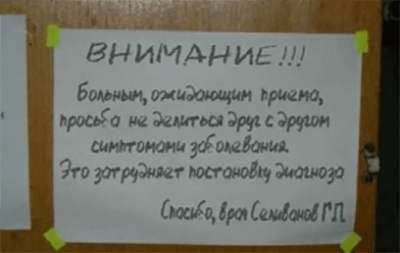 ВНИМАНИЕ!!!
Больным, ожидающим приема,
просьба не делиться друг с другом
симптомами заболевания.
Это затрудняет постановку диагноза
Спасибо, врач Селиванов Г.П.